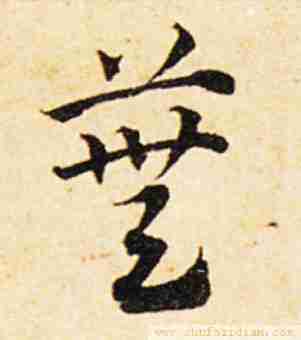 蕪
www.shufazidian.com